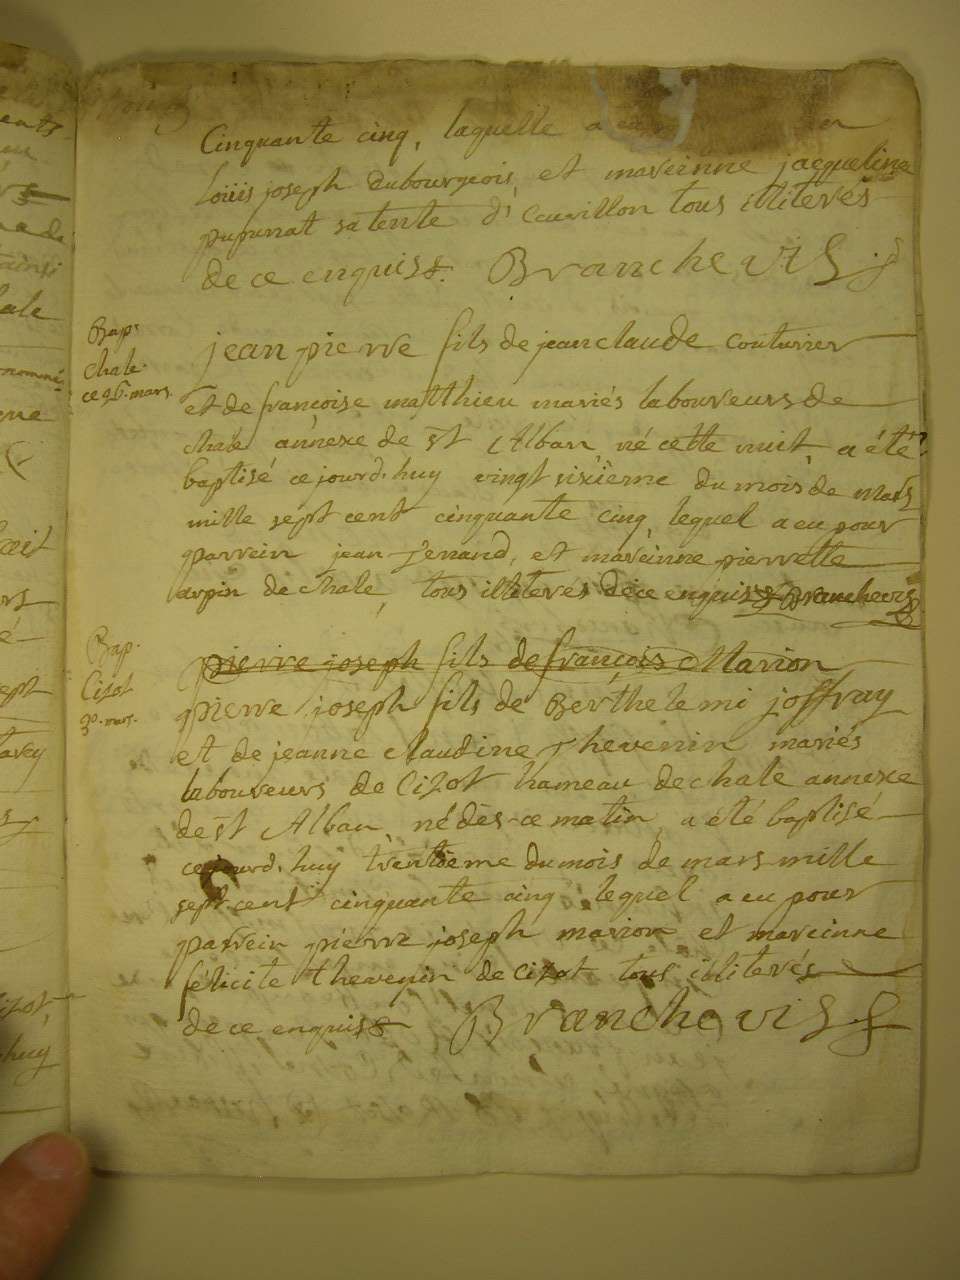 Cinquante cinq, laquelle a eu
loüis joseph dubourgeois, et mareinne jacqueline
sa tente d' Couvillon tous illiterés
de ce enquis. Branchevis
Bap.
Chale.
ce 26. mars.
jean pierre fils de jean claude couturier
et de francoise matthieu mariés laboureurs de
chale annexe de St Alban, né cette nuit, a été
baptisé ce jourd'huy vingt sixième du mois de mars
mille sept cent cinquante cinq, lequel a eu pour
parrein jean et mareinne pierrette
arpin de chale, tous illiterés de ce enquis Branchevis
Bap.
Cizot
30. mars.
pierre joseph fils de françois Marion
pierre joseph fils de Berthelemi joffray
et de jeanne claudine thevenin mariés
laboureurs de Cizot hameau de chale annexe
de St Alban, né dès ce matin, a été baptisé
ce jourd'huy trentieme du mois de mars mille
sept cent cinquante cinq lequel a eu pour
parrein pierre joseph marion et mareinne
félicite thevenin de Cizot tous illiterés
de ce enquis Branchevis